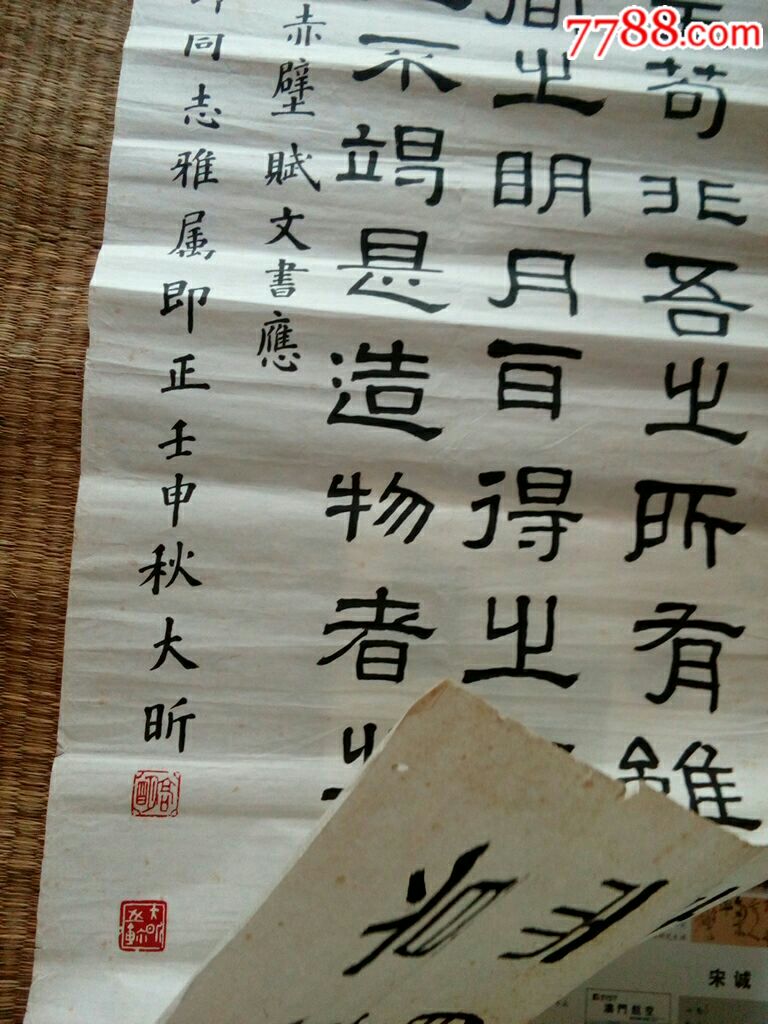 7788.com
苟非吾之所有雖
間之明月耳得之
不竭是造物者
赤壁賦文書應
同志雅属即正壬申秋大昕
宋诚
澳門航空